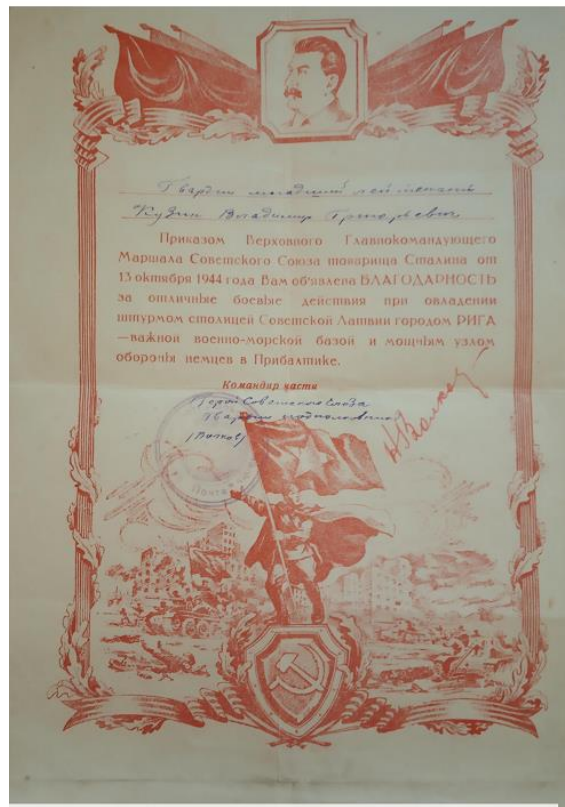 Гвардии младший лейтенант
Кузин Владимир Григорьевич
Приказом Верховного Главнокомандующего
Маршала Советского Союза товарища Сталина от
13 октября 1944 года Вам об'явлена БЛАГОДАРНОСТЬ
за отличные боевые действия при овладении
штурмом столицей Советской Латвии городом РИГА
—важной военно-морской базой и мощным узлом
обороны немцев в Прибалтике.
Командир части
Герой Советского Союза
Гвардии подполковник
(Волков)